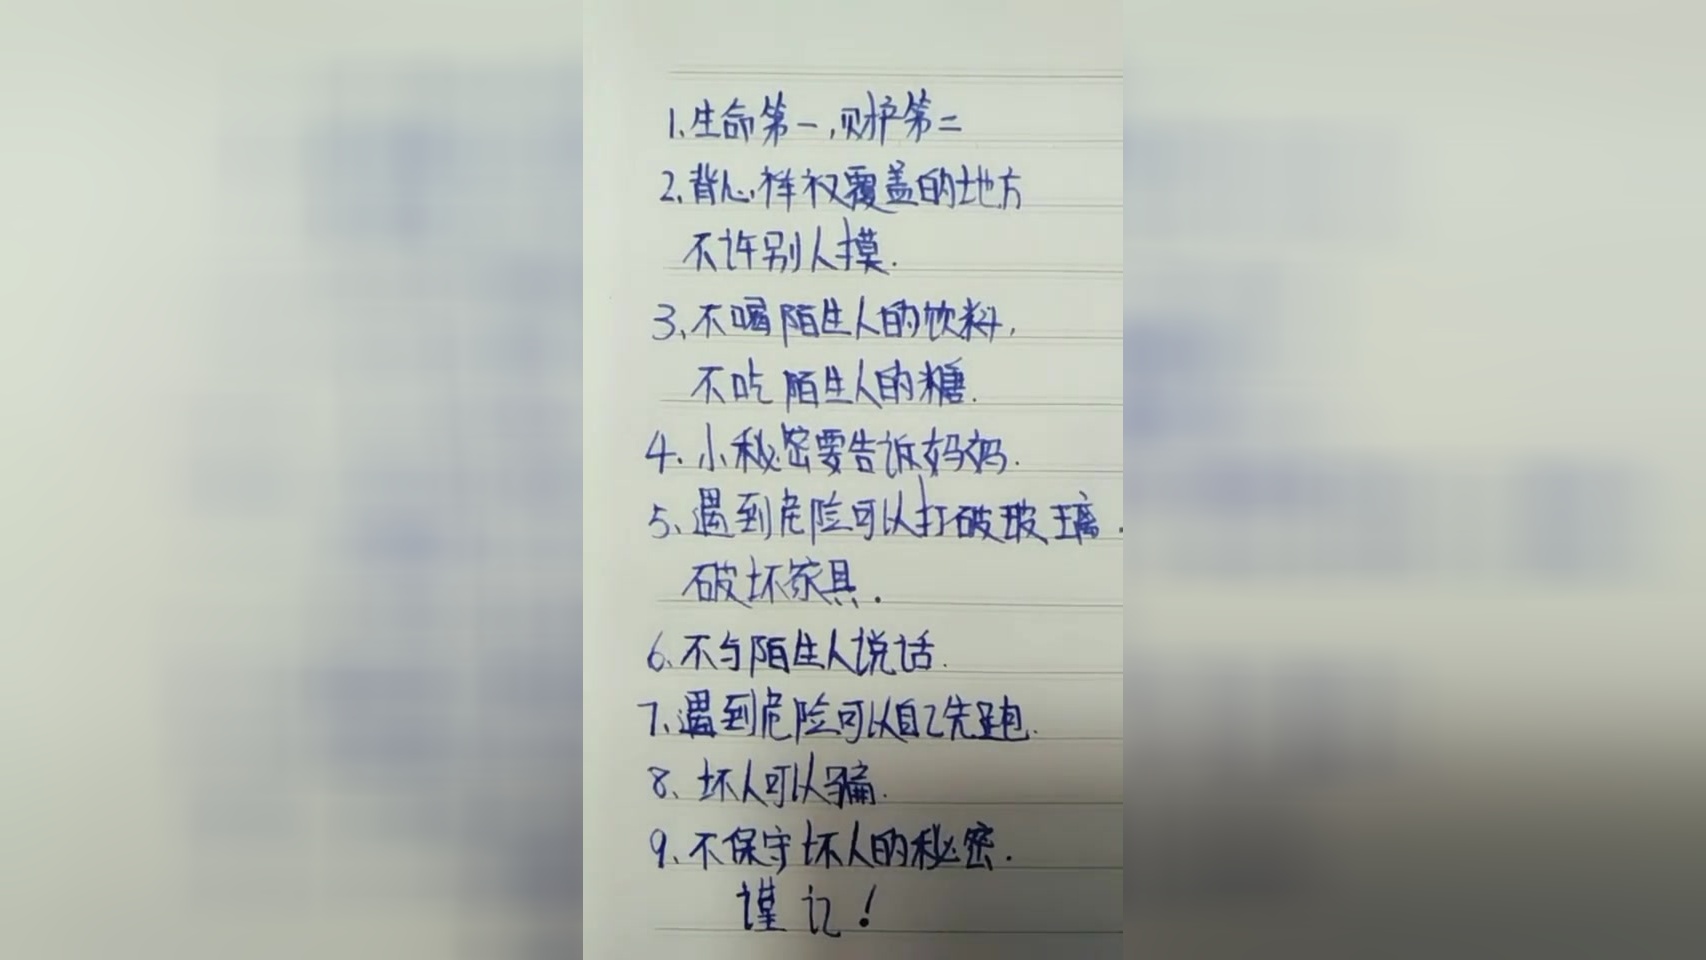 1.生命第一,财护第二
2.背心,样衩覆盖的地方
不许别人摸.
3.不喝陌生人的饮料,
不吃陌生人的糖.
4.小秘密要告诉妈妈.
5.遇到危险可以打破玻璃.
破坏家具.
6.不与陌生人说话.
7.遇到危险可以自己先跑.
8.坏人可以骗.
9.不保守坏人的秘密.
谨记!